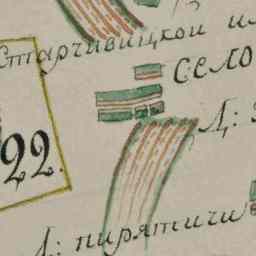 Старчивицкой
село
22.
Д:
Д: пирятичи